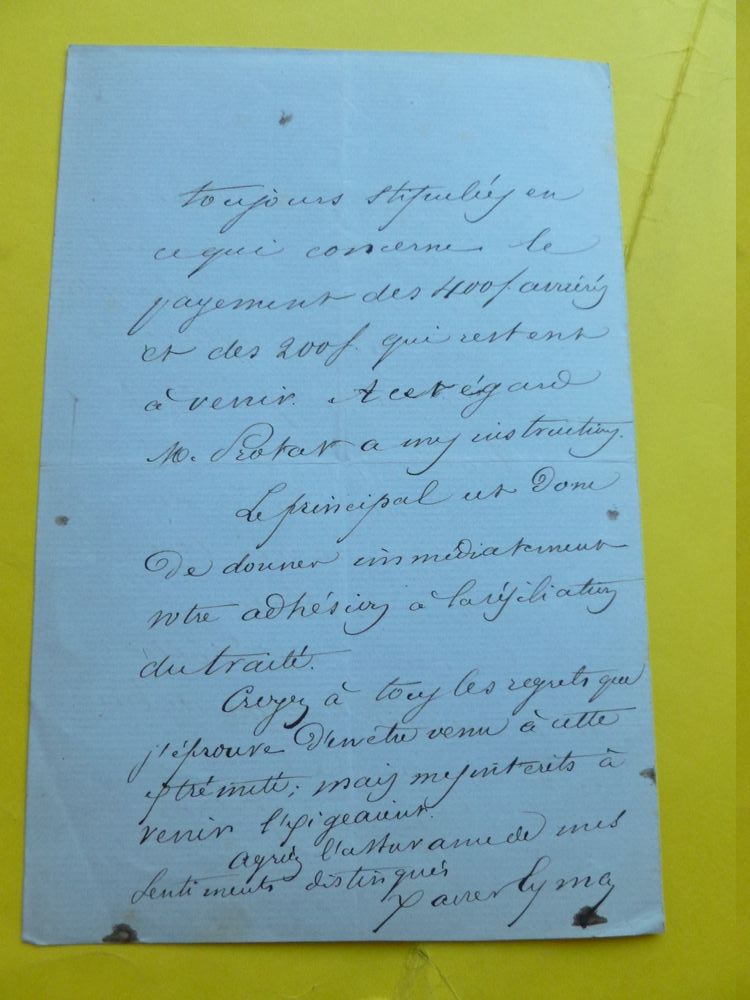 toujours stipulées en
ce qui concerne le
payement des 400f. arriérés
et des 200f. qui restent
à venir. A cet égard
M. Protat a mes instructions.
Le principal est donc
De donner immédiatement
votre adhésion à la résiliation
du traité.
Croyez à tous les regrets que
j'éprouve D'en être venu à cette
extrémité; mais mes intérêts à
venir l'exigeaient.
Agréez l'assurance de mes
Sentiments distingués
Xavier Eyma